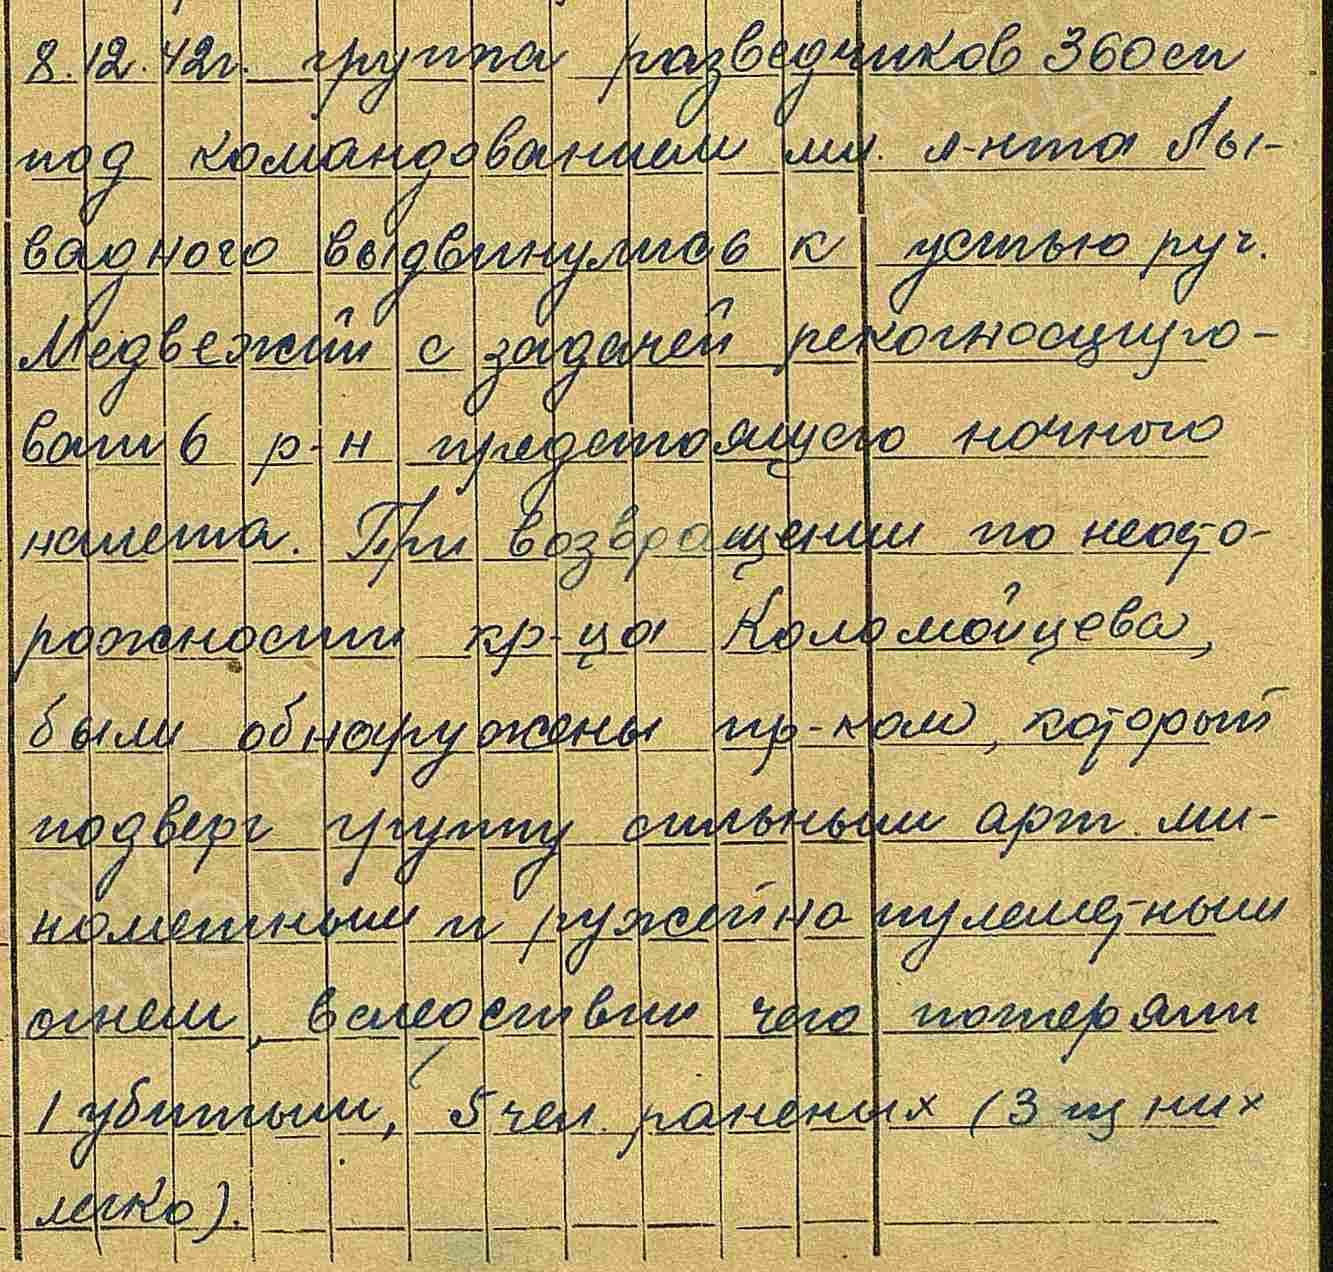 8.12.42г. группа разведчиков 360сп
под командованием мл. л-нта Бы-
вадного выдвинулись к устью руч.
Медвежий с задачей рекогносциро-
вать р-н предстоящего ночного
налета. При возвращении по неосто-
рожности кр-ца Коломойцева,
были обнаружены пр-ком, который
подверг группу сильным арт. ми-
нометным и ружейно пулеметным
огнем, вследствии чего потеряли
1 убитым, 5 чел. раненых (3 из них
легко).